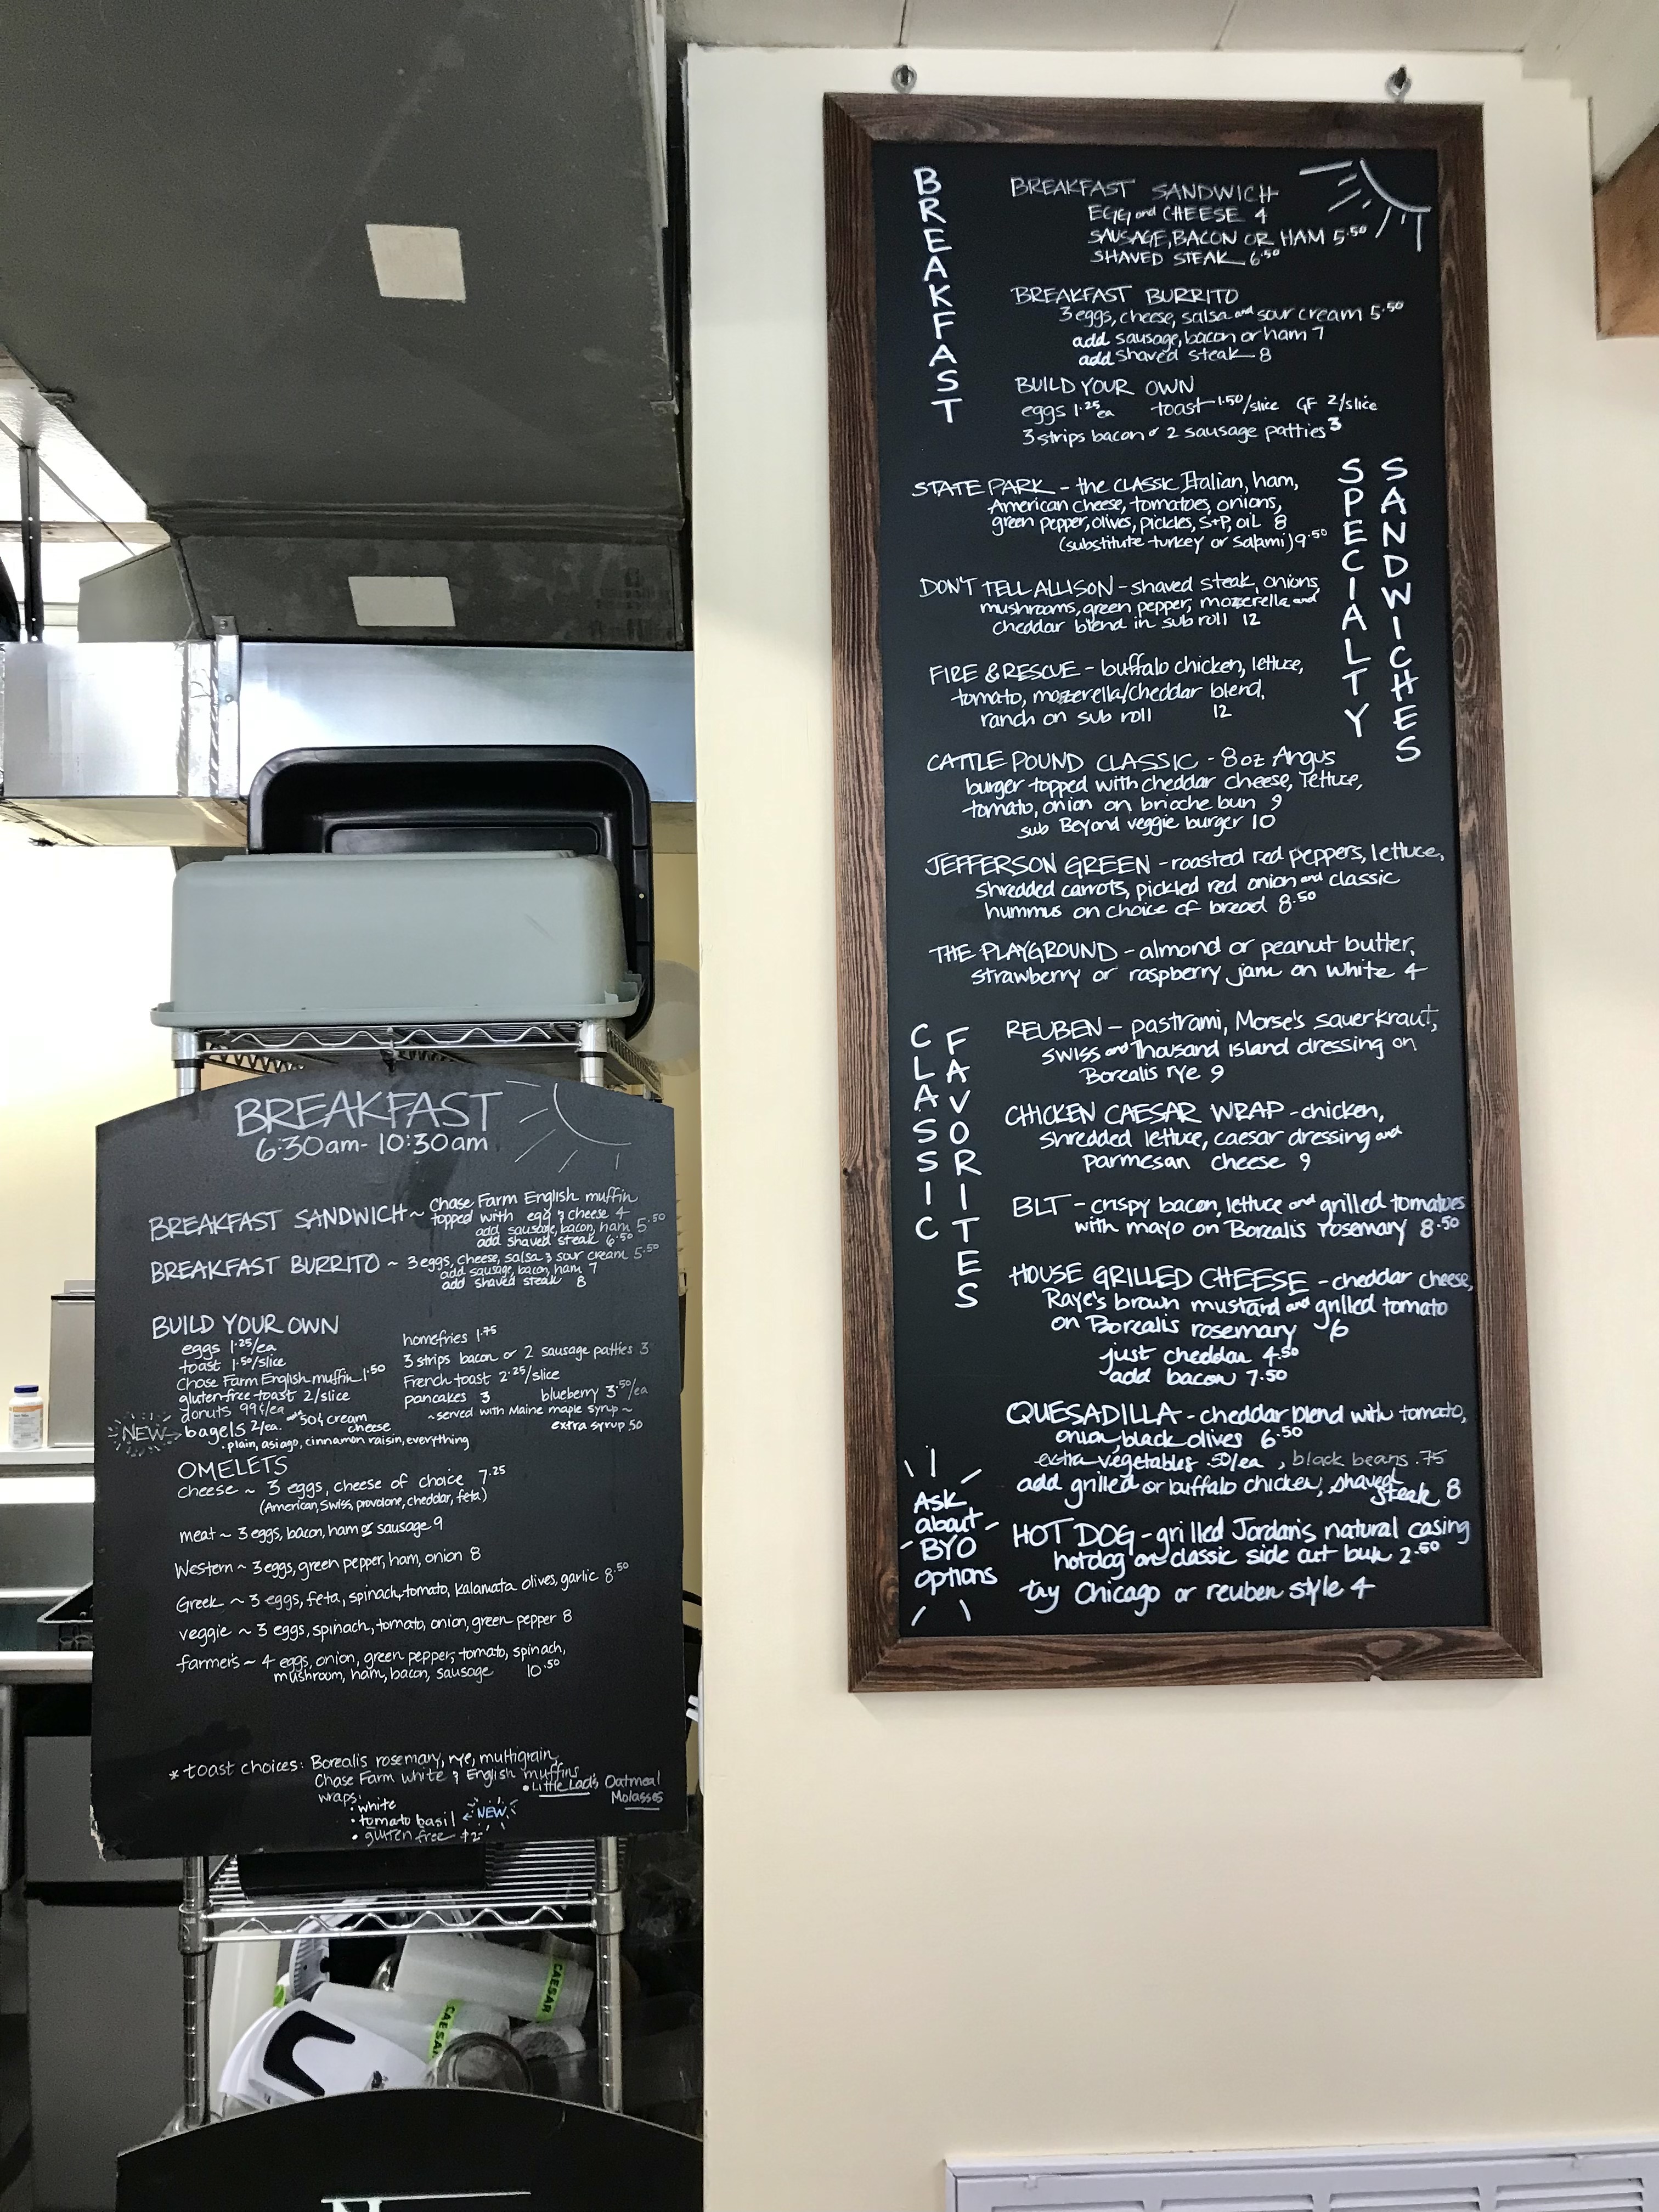 BREAKFAST
6:30am-10:30am
BREAKFAST SANDWICH ~ Chase Farm English muffin
topped with egg & cheese 4
add sausage, bacon, ham 5.50
add shaved steak 6.50
BREAKFAST BURRITO ~ 3 eggs, cheese, salsa & sour cream 5.50
add sausage, bacon, ham 7
add shaved steak 8
BUILD YOUR OWN
eggs 1.25/ea
toast 1.50/slice
Chase Farm English muffin 1.50
gluten-free toast 2/slice
donuts 99¢/ea
NEW → bagels 2/ea. and 50¢ cream cheese
· plain, asiago, cinnamon raisin, everything
homefries 1.75
3 strips bacon or 2 sausage patties 3
French toast 2.25/slice
pancakes 3 blueberry 3.50/ea
~served with Maine maple syrup~
extra syrup .50
OMELETS
Cheese ~ 3 eggs, cheese of choice 7.25
(American, Swiss, provolone, cheddar, feta)
meat ~ 3 eggs, bacon, ham or sausage 9
Western ~ 3 eggs, green pepper, ham, onion 8
Greek ~ 3 eggs, feta, spinach, tomato, kalamata olives, garlic 8.50
veggie ~ 3 eggs, spinach, tomato, onion, green pepper 8
farmers ~ 4 eggs, onion, green pepper, tomato, spinach,
mushroom, ham, bacon, sausage 10.50
* toast choices: Borealis rosemary, rye, multigrain,
Chase Farm white & English muffins
• Little Lad's Oatmeal
Molasses
wraps:
• white
• tomato basil ← NEW
• gluten free +2
CAESAR
CAESAR
BREAKFAST
BREAKFAST SANDWICH
EGG and CHEESE 4
SAUSAGE, BACON OR HAM 5.50
SHAVED STEAK 6.50
BREAKFAST BURRITO
3 eggs, cheese, salsa and sour cream 5.50
add sausage, bacon or ham 7
add shaved steak 8
BUILD YOUR OWN
eggs 1.25 ea toast 1.50/slice GF 2/slice
3 strips bacon or 2 sausage patties 3
SPECIALTY SANDWICHES
STATE PARK - the CLASSIC Italian, ham,
American cheese, tomatoes, onions,
green pepper, olives, pickles, S+P, oil 8
(substitute turkey or salami) 9.50
DON'T TELL ALLISON - shaved steak, onions,
mushrooms, green pepper, mozzerella and
cheddar blend in sub roll 12
FIRE & RESCUE - buffalo chicken, lettuce,
tomato, mozzerella/cheddar blend,
ranch on sub roll 12
CATTLE POUND CLASSIC - 8oz Angus
burger topped with cheddar cheese, lettuce,
tomato, onion on brioche bun 9
sub Beyond veggie burger 10
JEFFERSON GREEN - roasted red peppers, lettuce,
shredded carrots, pickled red onion and classic
hummus on choice of bread 8.50
THE PLAYGROUND - almond or peanut butter,
strawberry or raspberry jam on white 4
CLASSIC FAVORITES
REUBEN - pastrami, Morse's sauerkraut,
swiss and Thousand island dressing on
Borealis rye 9
CHICKEN CAESAR WRAP - chicken,
shredded lettuce, caesar dressing and
parmesan cheese 9
BLT - crispy bacon, lettuce and grilled tomatoes
with mayo on Borealis rosemary 8.50
HOUSE GRILLED CHEESE - cheddar cheese,
Raye's brown mustard and grilled tomato
on Borealis rosemary 6
just cheddar 4.50
add bacon 7.50
QUESADILLA - cheddar blend with tomato,
onion, black olives 6.50
extra vegetables .50/ea, black beans .75
add grilled or buffalo chicken, shaved steak 8
HOT DOG - grilled Jordan's natural casing
hotdog on classic side cut bun 2.50
try Chicago or reuben style 4
Ask
about
BYO
options